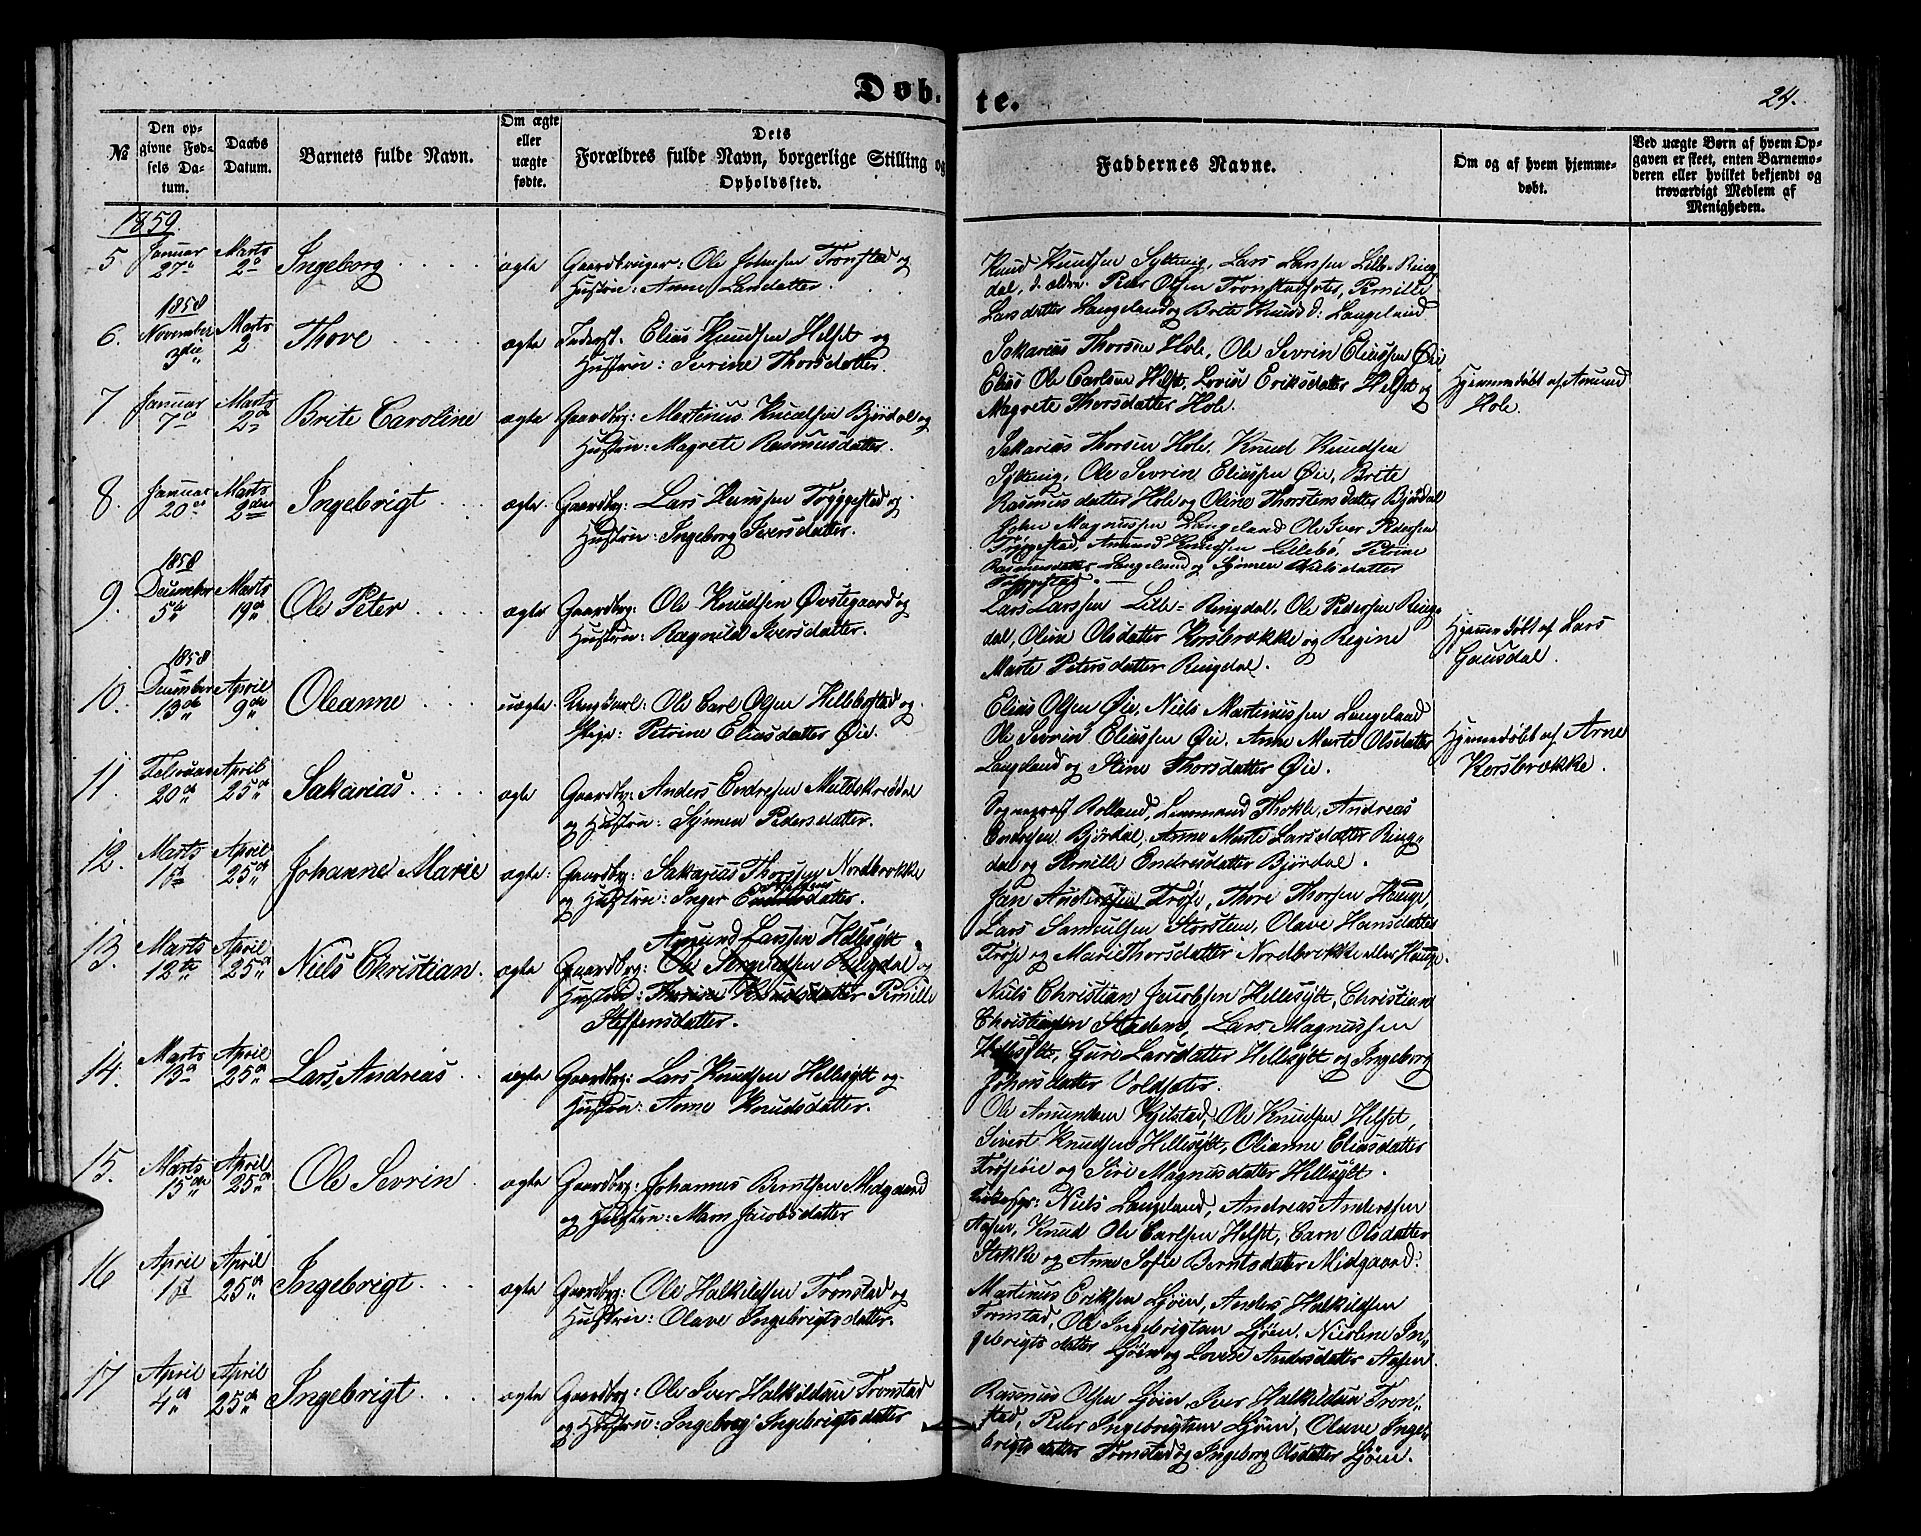 Døb-
te.
24.
№
Den op-
givne Fød-
sels Da-
tum.
Daabs
Datum.
Barnets fulde Navn.
Om ægte
eller
uægte
fødte.
Dets
Forældres fulde Navn, borgerlige Stilling og
Opholdssted.
Faddernes Navne.
Om og af hvem hjemme-
døbt.
Ved uægte Børn af hvem Op-
gaven er skeet, enten Barnemo-
deren eller hvilket bekjendt og
troværdigt Medlem af
Menigheden.
1859
5 Januar 27 Marts 2 Ingeborg ægte Gaardbruger: Ole Johnsen Tronstad og
Hustru: Anne Larsdatter.
Knud Knudsen Lars Larssen Lille-Ring-
dal, d. ældre. Peter Olsen Pernille
Larsdatter Langeland og Brite Knudsd: Langeland
1858
6. November 3die Marts 2 Thove ægte Elias Knudsen Helset og
Hustru: Sevrine Thorsdatter.
Sakarias Thorsen Hole, Ole Sevrin Eliassen Øie
Elias Ole Carlsen Helset, Lovise Eriksdatter Helset og
Magrete Thorsdatter Hole.
7 Januar 7 Marts 2 Brite Caroline ægte Gaardbr: Martinus Knudsen Bjørdal og
Hustru: Magrete Rasmusdatter.
Sakarias Thorsen Hole, Knud Knudsen
Ole Sevrin Eliassen Øie, Brite
Rasmusdatter Hole og Oline Thorstensdatter Bjørdal
Hjemmedøbt af Amund
Hole.
8. Januar 20 Marts 2den Ingebrigt ægte Gaardbr: Lars og
Hustru: Ingeborg Iversdatter.
John Magnussen Langeland, Ole Iver Pedersen
Amund Knudsen Lillebø, Petrine
Rasmusdatter Langeland og Synnen Nielsdatter
1858
9. December 5 Marts 19 Ole Peter ægte Gaardbr: Ole Knudsen Øvstegaard og
Hustru: Ragnild Iversdatter.
Lars Larssen Lille-Ringdal, Ole Pedersen Ring-
dal, Oline Olsdatter Korsbrække og Regine
Marte Petersdatter Ringdal.
Hjemmedøbt af Lars
Gausdal.
1858
10. December 13 April 9 Oleanne uægte Ungkarl: Ole Carl Olsen Hellebostad og
Pige: Petrine Eliasdatter Øie.
Elias Olsen Øie, Niels Martinussen Langeland
Ole Sevrin Eliassen Øie. Anne Marte Olsdatter
Langeland og Stine Thorsdatter Øie.
Hjemmedøbt af Arne
Korsbrække.
11. Februar 20 April 25 Sakarias ægte Gaardbr: Anders Endresen Muldskreddal
og Hustru: Synnen Pedersdatter.
Sogneprest Rolland, Andreas
Endresen Bjørdal, Anne Marte Larsdatter Ring-
dal og Pernille Endresdatter Bjørdal.
12. Marts 1st April 25 Johanne Marie ægte Gaardbr: Sakarias Thorssen Nordbrekke
og Hustru: Inger
Jan Anderssen Frøse, Thore Thorsen Hauge,
Lars Samuelsen Storstein, Olave Hansdatter
Frøse og Marie Thorsdatter Nordbrekke eller Hauge.
13. Marts 12te April 25 Niels Christian. ægte Amund Larssen Hellesylt
Gaardbr: Ole Ringdal og
Hustru: Knudsdatter Pernille
Steffensdatter.
Niels Christian Jacobsen Hellesylt, Christian
Christiansen Stadem, Lars Magnussen
Hellesylt, Guri Larsdatter Hellesylt og Ingeborg
Johnsdatter Voldsæter.
14. Marts 13 April 25 Lars Andreas ægte Gaardbr: Lars Knudsen Hellesylt og
Hustru: Anne Knudsdatter.
Ole Amundsen Kjelstad, Ole Knudsen Helset,
Sivert Knudsen Hellesylt, Olianne Eliasdatter
Frøsøie og Siri Magnusdatter Hellesylt.
15. Marts 15 April 25 Ole Sevrin ægte Gaardbr: Johannes Berntsen Midgaard
og Hustru: Maren Jacobsdatter
Niels Langeland, Andreas Anderssen
Aasen, Knud Ole Carlsen Helset, Caren Olsdatter
Stokke og Anne Sofie Berntsdatter Midgaard.
16 April 1st April 25 Ingebrigt ægte Gaardbr: Ole Halkildsen Tronstad og
Hustru: Olave Ingebrigtsdatter.
Martinus Eriksen Ljøen, Anders Halkildsen
Tronstad, Ole Ingebrigtsen Ljøen, Nicoline In-
gebrigtsdatter Ljøen og Lovise Andersdatter Aasen.
17 April 4 April 25 Ingebrigt ægte Gaardbr: Ole Iver Halkildsen Tronstad
og Hustru: Ingeborg Ingebrigtsdatter
Rasmus Olsen Ljøen, Iver Halkildsen Tron-
stad, Peter Ingebrigtsen Ljøen, Olave Inge-
brigtsdatter Tronstad og Ingeborg Olsdatter Ljøen.